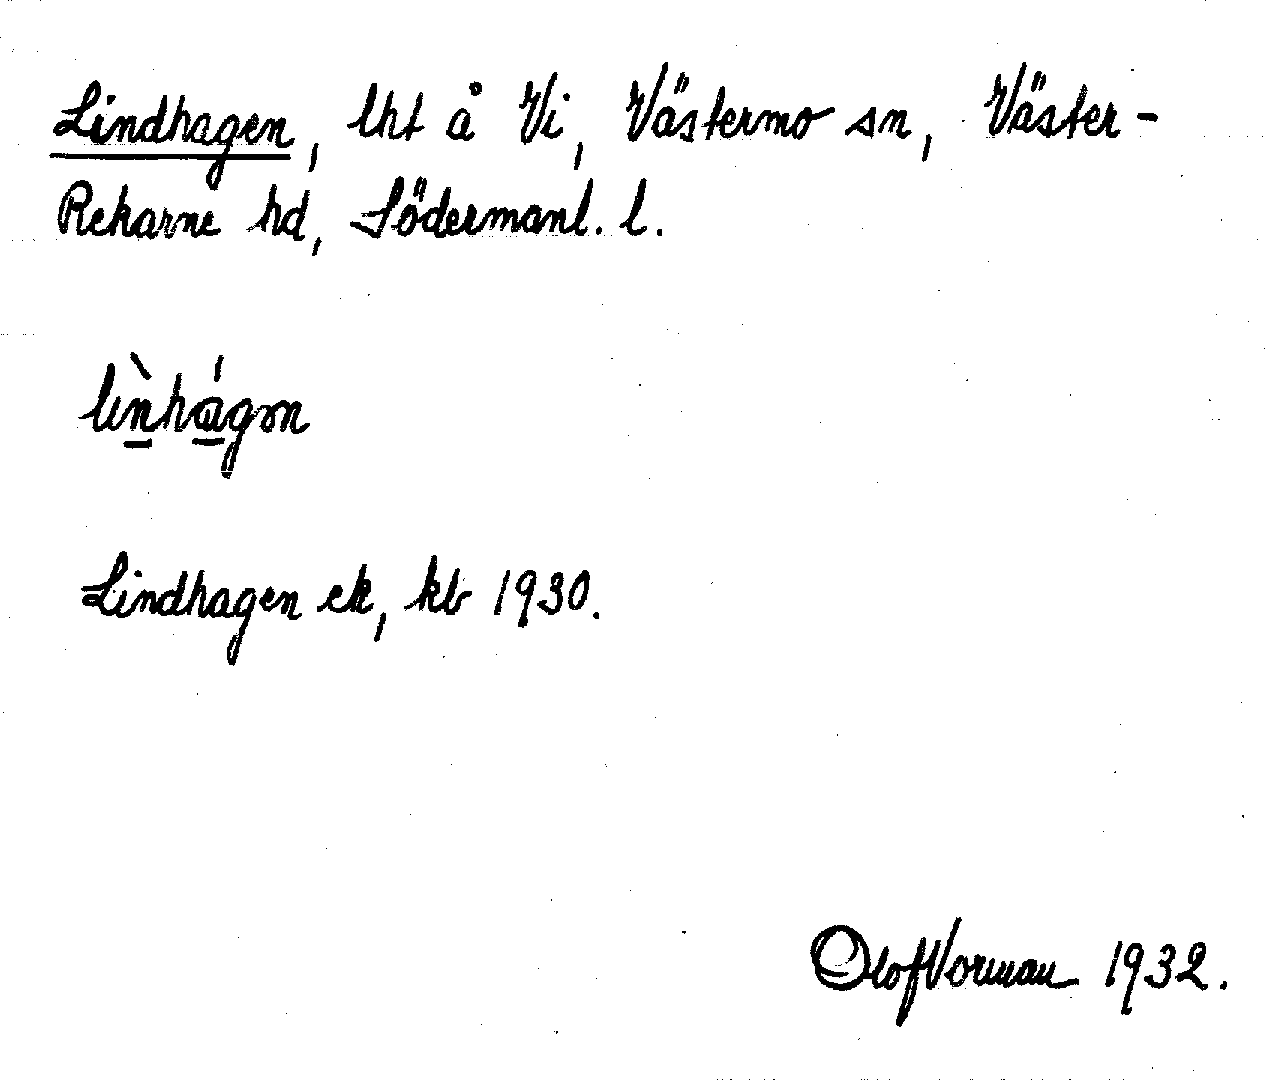 Lindhagen, lht å Vi, Västermo sn, Väster-
Rekarne hd, Södermanl. l.
lìnhágən
Lindhagen ek, kb 1930.
Olof Vorman 1932.